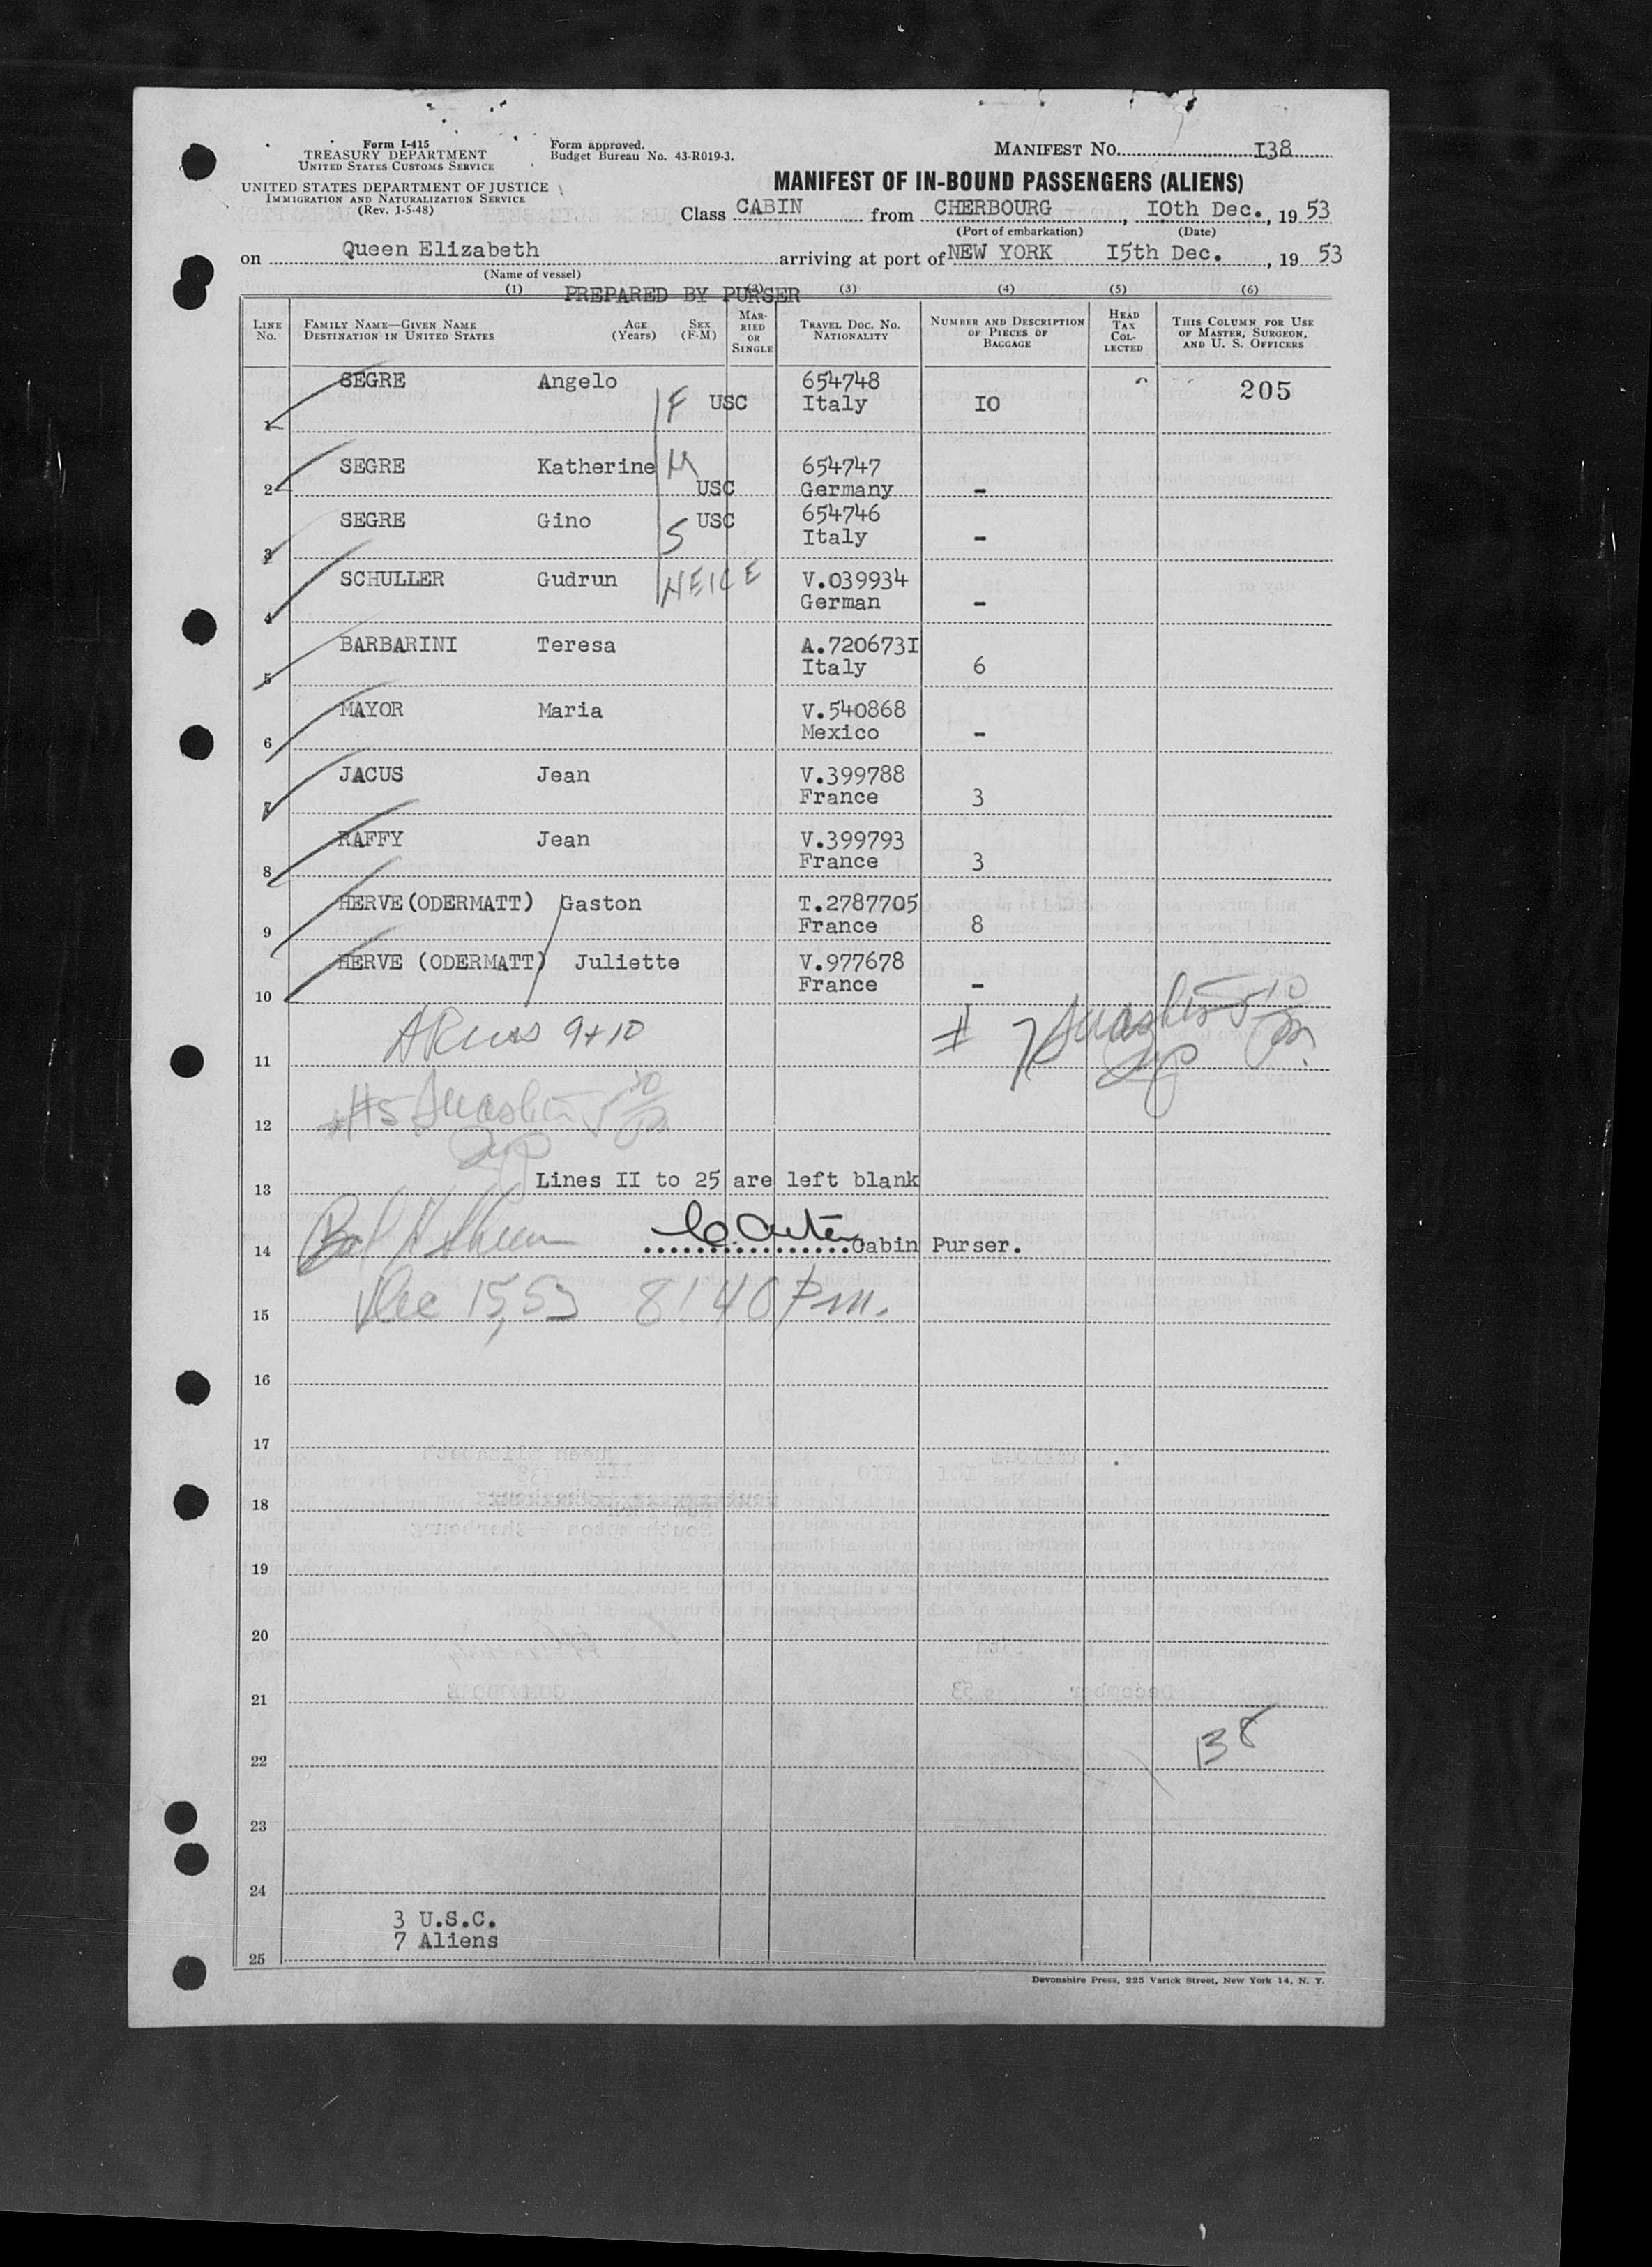 Form I-415
TREASURY DEPARTMENT
UNITED STATES CUSTOMS SERVICE
Form approved.
Budget Bureau No. 43-R019-3.
MANIFEST NO. I38
UNITED STATES DEPARTMENT OF JUSTICE
IMMIGRATION AND NATURALIZATION SERVICE
(Rev. 1-5-48)
MANIFEST OF IN-BOUND PASSENGERS (ALIENS)
Class CABIN from CHERBOURG, IOth Dec., 19 53
(Port of embarkation) (Date)
on Queen Elizabeth arriving at port of NEW YORK I5th Dec., 19 53
(Name of vessel)
(1) PREPARED BY PURSER (2) (3) (4) (5) (6)
LINE No. FAMILY NAME—GIVEN NAME DESTINATION IN UNITED STATES AGE (Years) SEX (F-M) MARRIED OR SINGLE TRAVEL DOC. NO. NATIONALITY NUMBER AND DESCRIPTION OF PIECES OF BAGGAGE HEAD TAX COLLECTED THIS COLUMN FOR USE OF MASTER, SURGEON, AND U. S. OFFICERS
SEGRE Angelo 654748 205
1 F USC Italy IO
SEGRE Katherine M 654747
2 USC Germany -
SEGRE Gino USC 654746
3 S Italy -
SCHULLER Gudrun NEICE V.039934
4 German -
BARBARINI Teresa A.720673I
5 Italy 6
MAYOR Maria V.540868
6 Mexico -
JACUS Jean V.399788
7 France 3
RAFFY Jean V.399793
8 France 3
HERVE (ODERMATT) Gaston T.2787705
9 France 8
HERVE (ODERMATT) Juliette V.977678
10 France -
9+10
# 7
11
#5
12
Lines II to 25 are left blank
13
14 Cabin Purser.
Dec 15, 53 8:40 P.m.
15
16
17
18
19
20
21
138
22
23
24
3 U.S.C.
7 Aliens
25
Devonshire Press, 225 Varick Street, New York 14, N. Y.